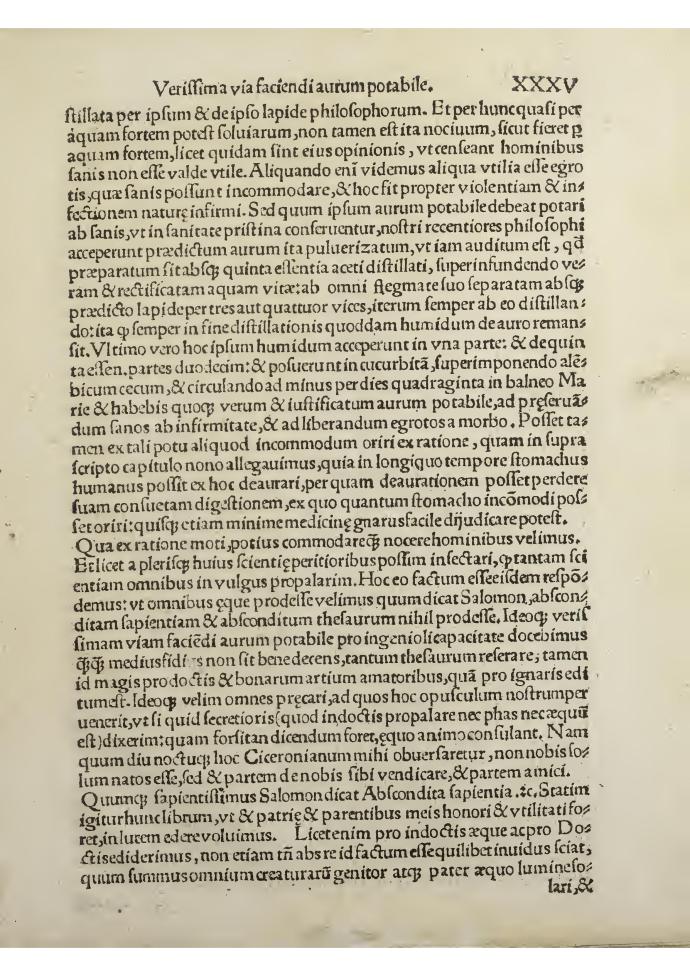 Verissima via faciendi aurum potabile. XXXV
ſtillata per ipſum & de ipſo lapide philoſophorum. Et per hunc quaſi per
aquam fortem poteſt ſoluiarum, non tamen eſt ita nociuum, ſicut fieret ꝑ
aquam fortem, licet quidam ſint eius opinionis, vt cenſeant hominibus
ſanis non eſſe valde vtile. Aliquando eni videmus aliqua vtilia eſſe egro
tis, quæ ſanis poſſunt incommodare, & hoc fit propter violentiam & in⸗
fectionem naturę infirmi. Sed quum ipſum aurum potabile debeat potari
ab ſanis, vt in ſanitate priſtina conſeruentur, noſtri recentiores philoſophi
acceperunt prædictum aurum ita puluerizatum, vt iam auditum eſt, qđ
præparatum ſit abſqꝫ quinta eſſentia aceti diſtillati, ſuperinfundendo ve⸗
ram & rectificatam aquam vitæ: ab omni flegmate ſuo ſeparatam abſqꝫ
prædicto lapide per tres aut quattuor vices, iterum ſemper ab eo diſtillan⸗
do: ita ꝙ ſemper in fine diſtillationis quoddam humidum de auro remans
ſit. Vltimo vero hoc ipſum humidum acceperunt in vna parte: & de quin
ta eſſen. partes duodecim: & poſuerunt in cucurbitā, ſuperimponendo alē⸗
bicum cecum, & circulando ad minus per dies quadraginta in balneo Ma
rie & habebis quoqꝫ verum & iuſtificatum aurum potabile, ad pręſeruā⸗
dum ſanos ab infirmitate, & ad liberandum egrotos a morbo. Poſſet ta⸗
men ex tali potu aliquod incommodum oriri ex ratione, quam in ſupra
ſcripto capitulo nono allegauimus, quia in longiquo tempore ſtomachus
humanus poſſit ex hoc deaurari, per quam deaurationem poſſet perdere
ſuam conſuetam digeſtionem, ex quo quantum ſtomacho incōmodi poſ⸗
ſet oriri: quiſqꝫ etiam minime medicinę gnarus facile dijudicare poteſt.
Qua ex ratione moti, potius commodare qꝫ nocere hominibus velimus.
Et licet a pleriſqꝫ huius ſcientię peritioribus poſſim inſectari, ꝙ tantam ſci
entiam omnibus in vulgus propalarim. Hoc eo factum eſſe eiſdem reſpō⸗
demus: vt omnibus ęque prodeſſe velimus quum dicat Salomon, abſcon⸗
ditam ſapientiam & abſconditum theſaurum nihil prodeſſe. Ideoqꝫ veriſ
ſimam viam faciēdi aurum potabile pro ingenioli capacitate docebimus
qꝫqꝫ mediusfidi s non ſit bene decens, tantum theſaurum reſerare, tamen
id magis pro doctis & bonarum artium amatoribus, quā pro ignaris edi
tum eſt. Ideoqꝫ velim omnes pręcari, ad quos hoc opuſculum noſtrum per
uenerit, vt ſi quid ſecretioris (quod indoctis propalare nec phas nec æquū
eſt) dixerim: quam forſitan dicendum foret, ęquo animo conſulant. Nam
quum diu noctuqꝫ hoc Ciceronianum mihi obuerſaretur, non nobis ſo⸗
lum natos eſſe, ſed & partem de nobis ſibi vendicare, & partem amici.
Quumqꝫ ſapientiſſimus Salomon dicat Abſcondita ſapientia .ꝛc. Statim
igitur hunc librum, vt & patrię & parentibus meis honori & vtilitati fo⸗
ret, in lucem edere voluimus. Licet enim pro indoctis æque ac pro Do⸗
ctis ediderimus, non etiam tn̄ abs re id factum eſſe quilibet inuidus ſciat,
quum ſummus omnium creaturarū genitor atqꝫ pater æquo lumine ſo⸗
lari, &